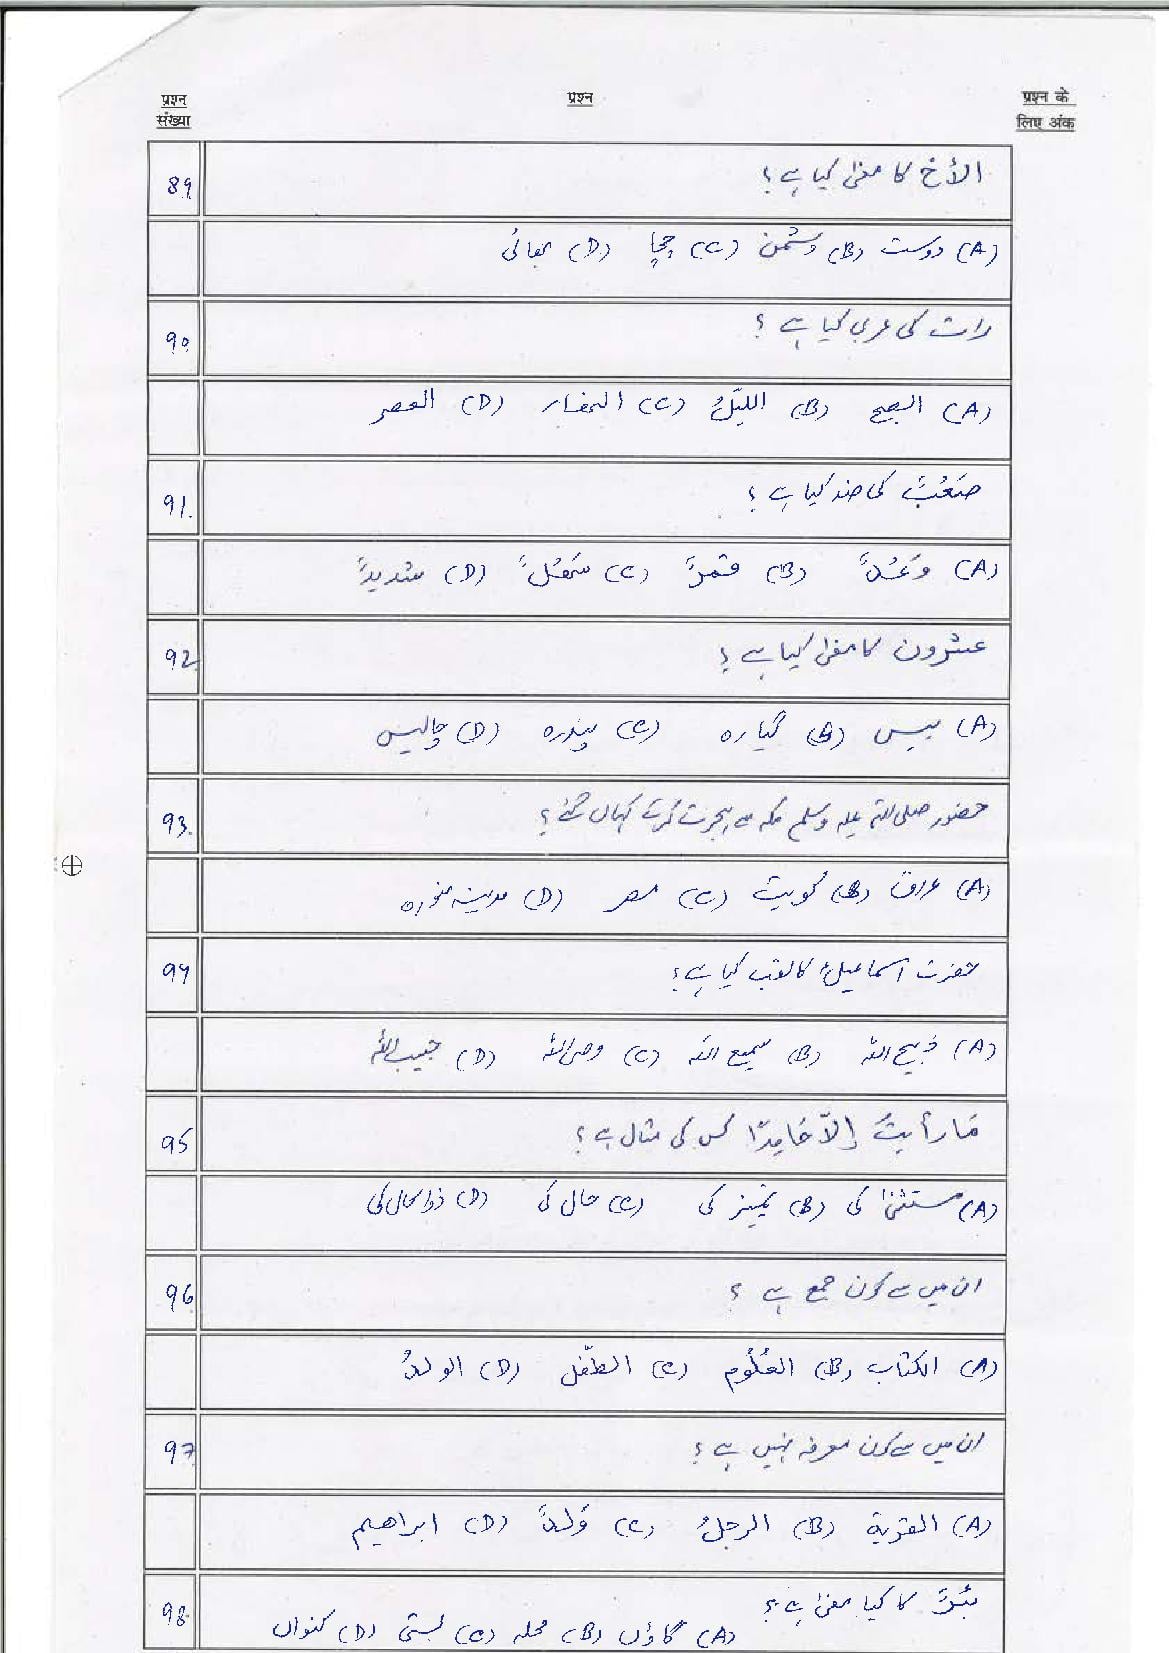 प्रश्न संख्या
प्रश्न
प्रश्न के लिए अंक
89
الأخ کا معنی کیا ہے؟
(A) دوست (B) دشمن (C) چچا (D) بھائی
90
رات کی عربی کیا ہے؟
(A) الصبح (B) الليلُ (C) النهار (D) العصر
91.
صَعْبٌ کی ضد کیا ہے؟
(A) (B) (C) (D)
92.
عشرون کا معنی کیا ہے؟
(A) بیس (B) گیارہ (C) پندرہ (D) چالیس
93.
حضور صلی اللہ علیہ وسلم مکہ سے ہجرت کرکے کہاں گئے؟
(A) عراق (B) کویت (C) مصر (D) مدینہ منورہ
94
حضرت اسماعیلؑ کا لقب کیا ہے؟
(A) ذبیح اللہ (B) سمیع اللہ (C) (D) حبیب اللہ
95
مَا رأيتُ إلاّ حَامِدًا کس کی مثال ہے؟
(A) مستثنیٰ کی (B) تمیز کی (C) حال کی (D) ذوالحال کی
96
ان میں سے کون جمع ہے؟
(A) الكتاب (B) العُلُوم (C) الطّفل (D) الولدُ
97
ان میں سے کون معرفہ نہیں ہے؟
(A) القرية (B) الرجلُ (C) وَلدٌ (D) ابراهيم
98
بئرٌ کا کیا معنی ہے؟
(A) گاؤں (B) محلہ (C) بستی (D) کنواں